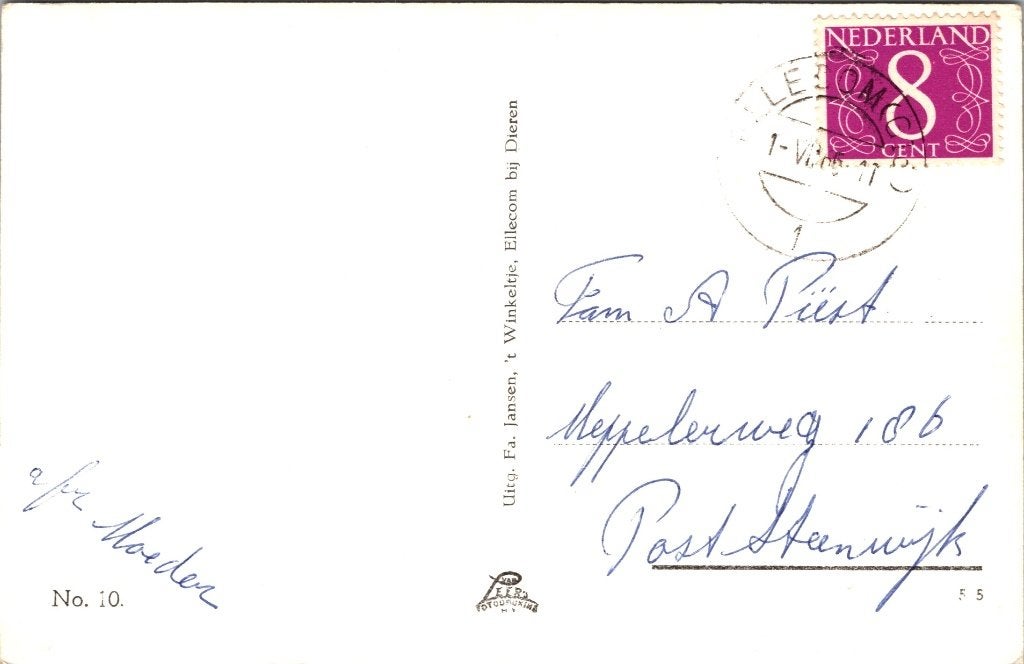 NEDERLAND
8
CENT
ELLECOM (GLD.)
1
Uitg. Fa. Jansen, 't Winkeltje, Ellecom bij Dieren
Fam A Piëst
Meppelerweg 186
Post Steenwijk
afz Moeder
No. 10.
VAN LEER'S
FOTODRUKIND.
N.V.
5 5